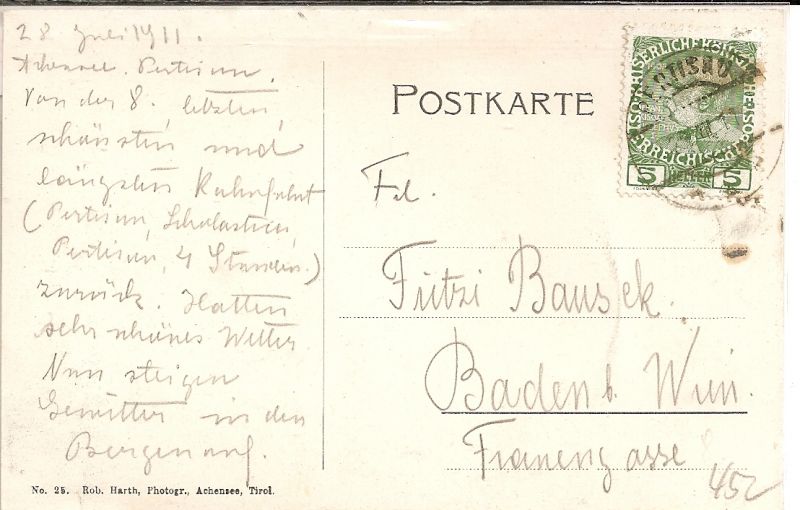 28 Juli 1911.
Achensee. Pertisau.
Von der 8. letzten,
schönsten und
längsten Kahnfahrt
(Pertisau, Scholastica,
Pertisau, 4 Stunden.)
zurück. Hatten
sehr schönes Wetter
Nun steigen
Gewitter in den
Bergen auf.
No. 25. Rob. Harth, Photogr., Achensee, Tirol.
POSTKARTE
5 HELLER 5
Frl.
Fritzi Bausek.
Baden b. Wien.
Frauengasse
452